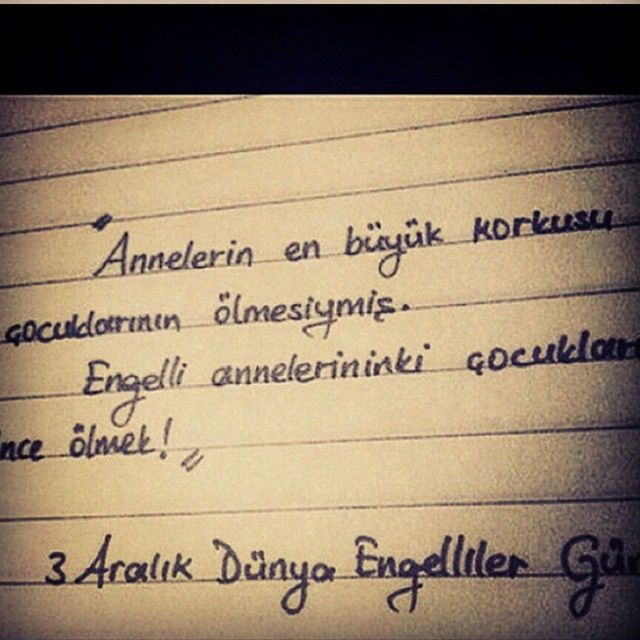 "Annelerin en büyük korkusu
çocuklarının ölmesiymiş.
Engelli annelerininki çocukları
nce ölmek!"
3 Aralık Dünya Engelliler Gün